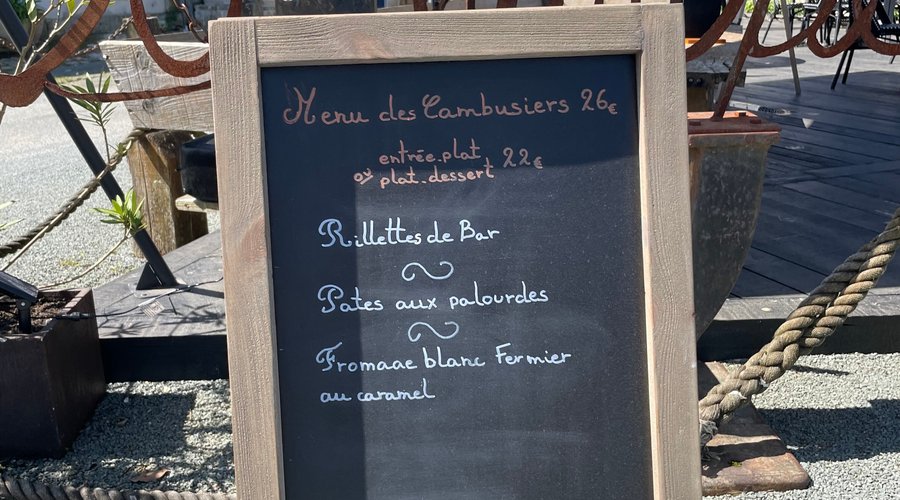 Menu des Cambusiers 26€
entrée.plat
ou plat.dessert 22€
Rillettes de Bar
Pates aux palourdes
Fromage blanc Fermier
au caramel